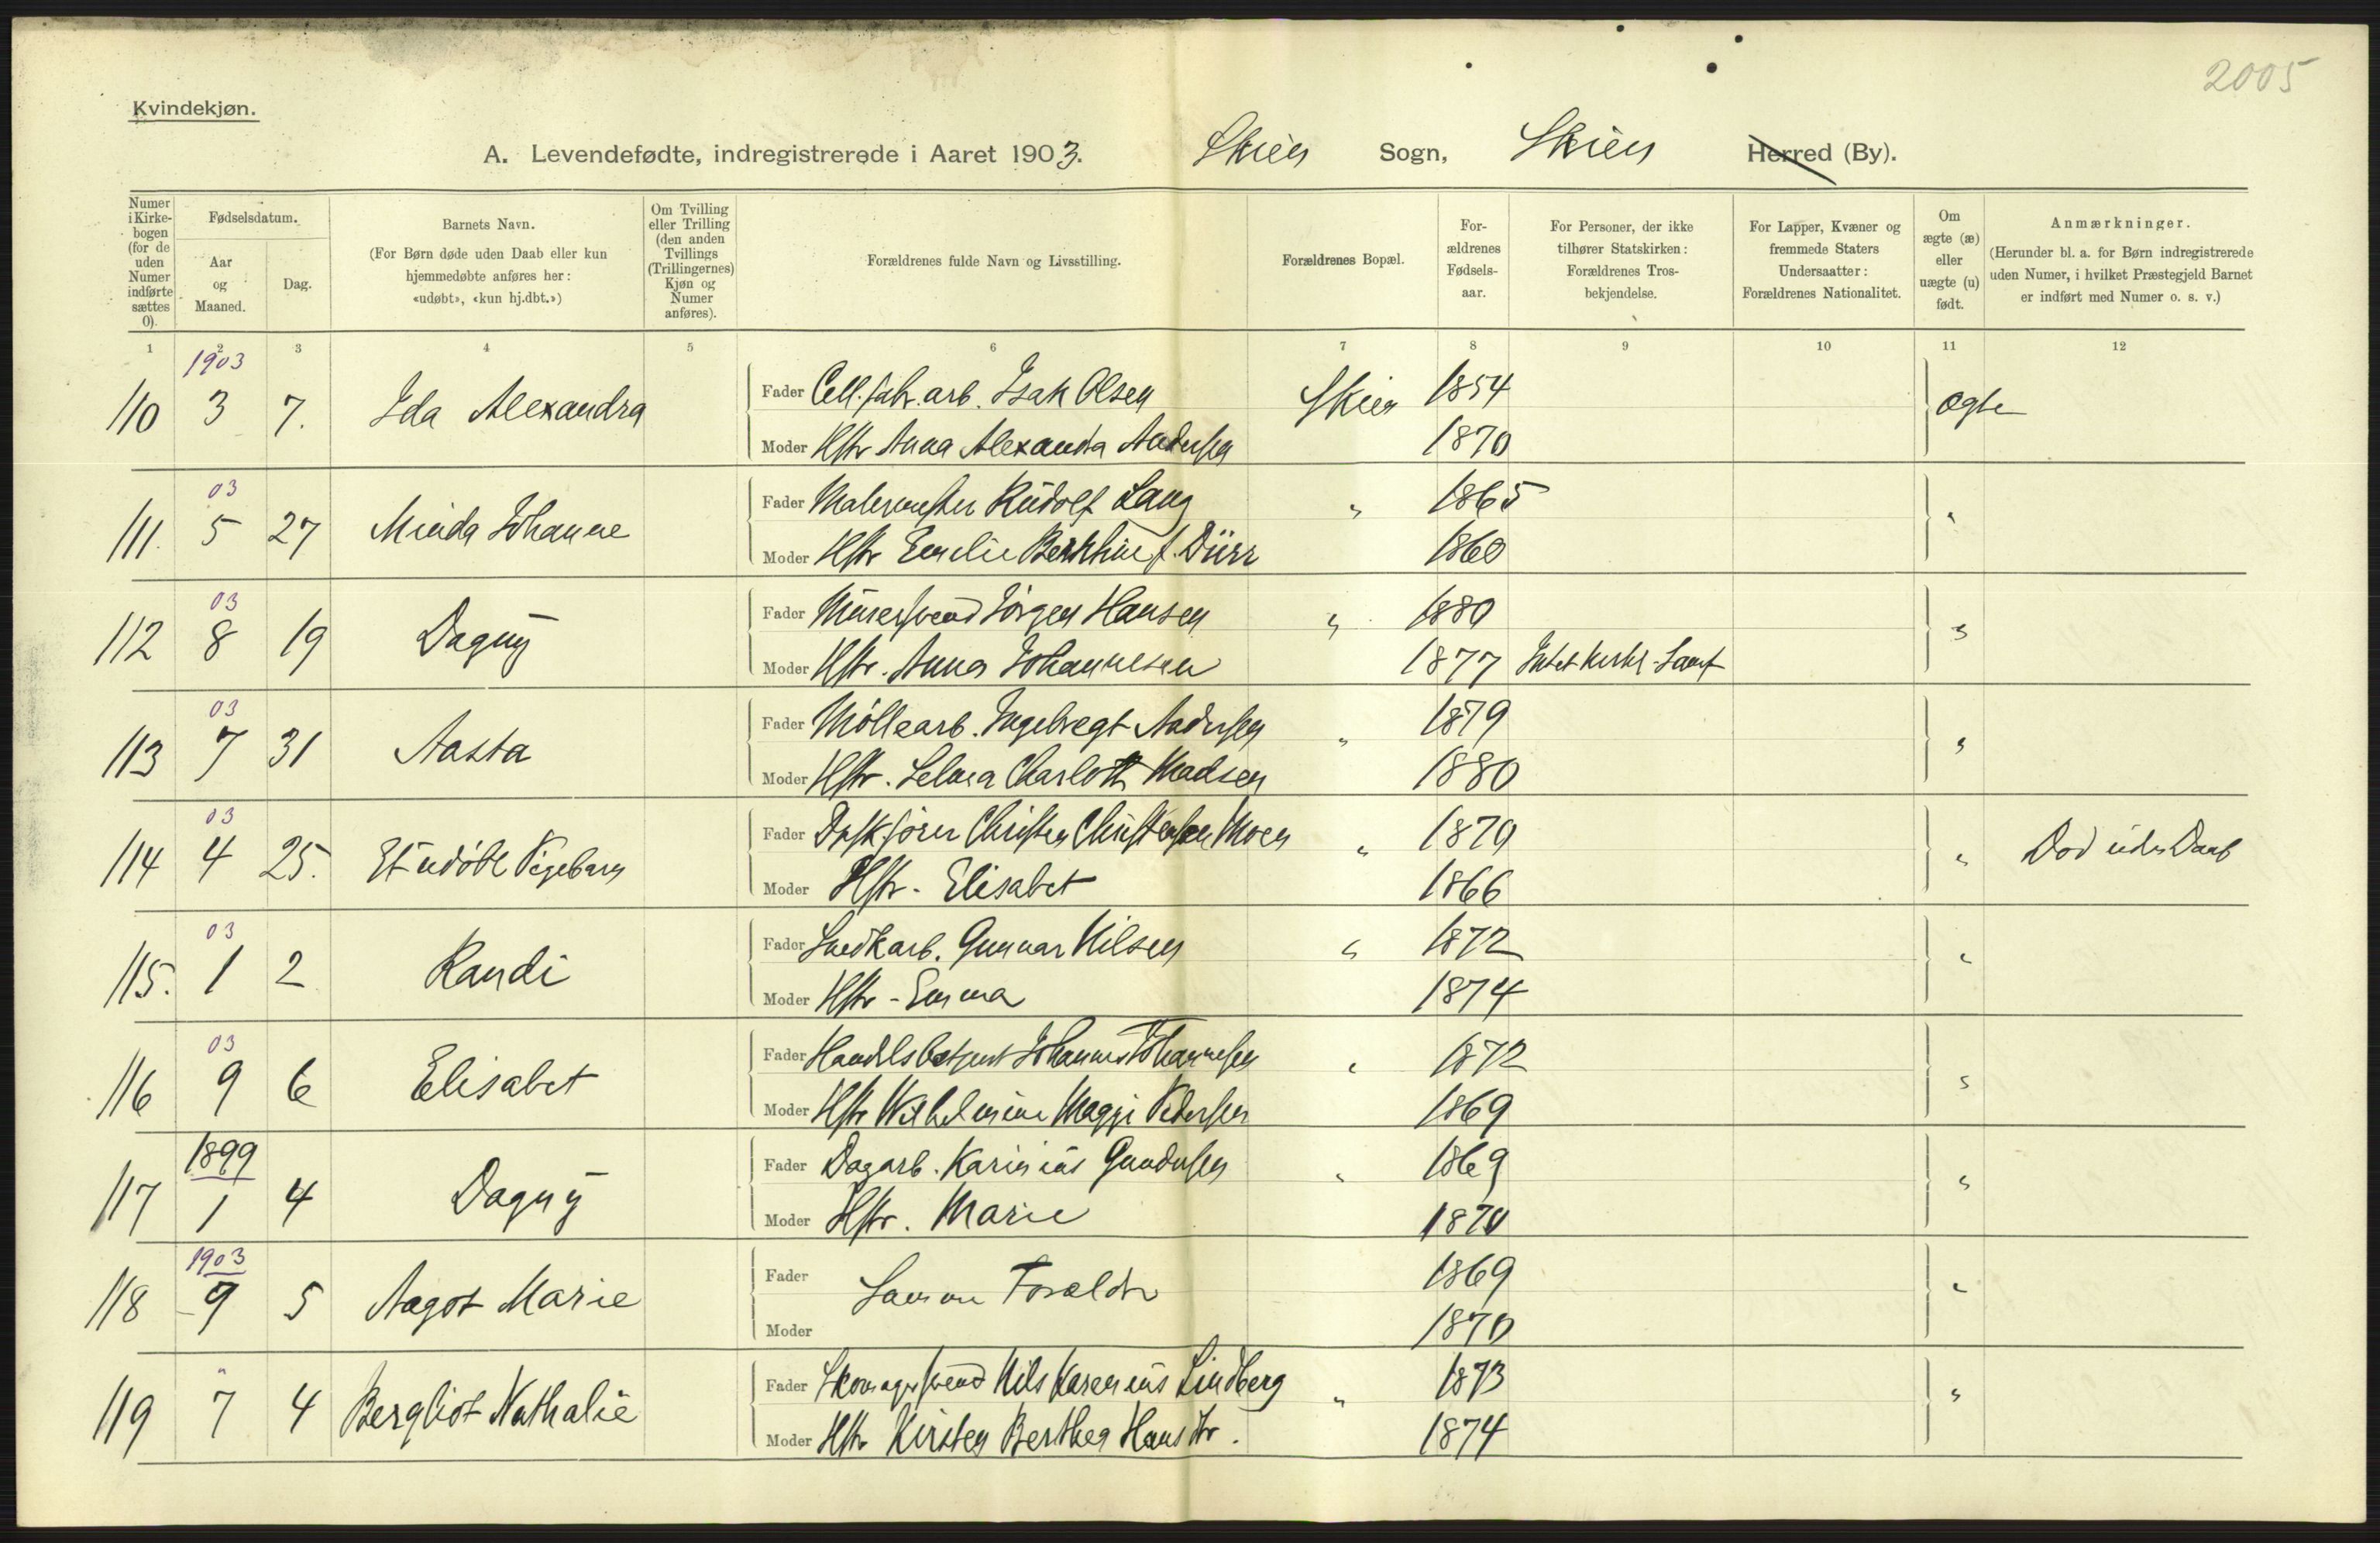 2005
Kvindekjøn.
A. Levendefødte, indregistrerede i Aaret 1903. Skien Sogn, Skien Herred (By).
Numer i Kirkebogen (for de uden Numer indførte sættes 0).
Fødselsdatum.
Aar og Maaned.
Dag.
Barnets Navn.
(For Børn døde uden Daab eller kun
hjemmedøbte anføres her:
«udøbt», «kun hj.dbt.»)
Om Tvilling eller Trilling (den anden Tvillings (Trillingernes) Kjøn og Numer anføres).
Forældrenes fulde Navn og Livsstilling.
Forældrenes Bopæl.
For-
ældrenes
Fødsels-
aar.
For Personer, der ikke
tilhører Statskirken:
Forældrenes Tros-
bekjendelse.
For Lapper, Kvæner og
fremmede Staters
Undersaatter:
Forældrenes Nationalitet.
Om
ægte (æ)
eller
uægte (u)
født.
Anmærkninger.
(Herunder bl. a. for Børn indregistrerede
uden Numer, i hvilket Præstegjeld Barnet
er indført med Numer o. s. v.)
1 2 3 4 5 6 7 8 9 10 11 12
1903
110 3 7. Ida Alexandra Fader Cell.fabr.arb. Isak Olsen Skien 1854 ægte
Moder Hstr Anna Alexandra Andersen 1870
03
111. 5 27 Minda Johanne Fader Malermester Rudolf Lang " 1865 "
Moder Hstr Emilie f. Dürr 1860
03
112 8 19 Dagny Fader Mursvend Jörgen Hansen " 1880 "
Moder Hstr. Anna Johannesen 1877 Intet Kirke-Samf
03
113 7 31 Aasta Fader Möllearb. Ingebregt Andersen " 1879 "
Moder Hstr. Selma Charlotte Madsen 1880
03
114 4 25. Et udöbt Pigebarn Fader Christen Christensen Moen " 1879 " Död uden Daab
Moder Hstr. Elisabet 1866
03
115. 1 2 Randi Fader Snedkarb. Gunnar Nilsen " 1872 "
Moder Hstr - Emma 1874
03
116 9 6 Elisabet Fader Handelsbetjent Johannes Johannesen " 1872 "
Moder Hstr Wilhelmine Maggi Pedersen 1869
1899
117 1 4 Dagny Fader Dagarb. Karinius Gundersen " 1869 "
Moder Hstr. Marie 1870
1903
118 9 5 Aagot Marie Fader Samme Forældre 1869 "
Moder 1870
"
119 7 4 Bergliot Nathalie Fader Skomagersvend Nils Karenius Lindberg " 1873 "
Moder Hstr Kirsten Berthea Hansdtr. 1874